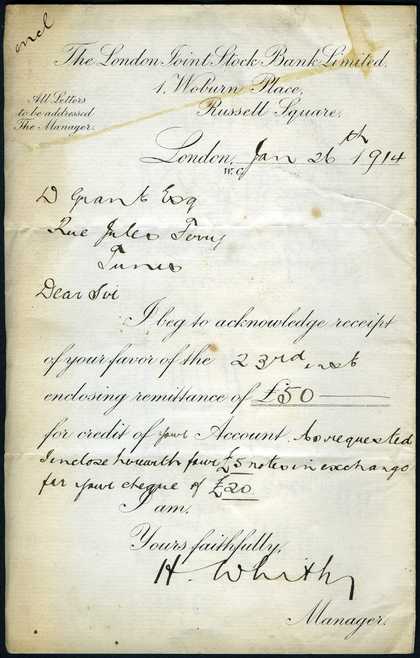 encl
The London Joint Stock Bank Limited.
1, Woburn Place,
Russell Square,
All Letters
to be addressed
The Manager.
London, Jan 26th 1914
W.C.
D Grant Esq
Rue Jules Ferry
Tunis
Dear Sir
I beg to acknowledge receipt
of your favor of the 23rd inst
enclosing remittance of £50
for credit of your Account. As requested
I enclose herewith four £5 notes in exchange
for your cheque of £20.
I am,
Yours faithfully,
H. Whithy
Manager.